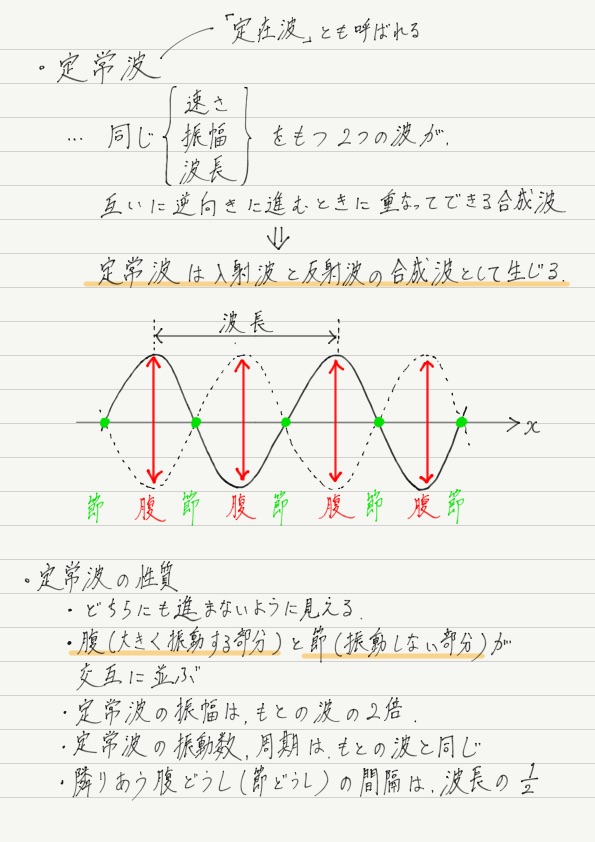 「定在波」とも呼ばれる
・定常波
… 同じ{速さ 振幅 波長}をもつ2つの波が,
互いに逆向きに進むときに重なってできる合成波
⇓
定常波は入射波と反射波の合成波として生じる.
波長
x
節 腹 節 腹 節 腹 節 腹 節
・定常波の性質
・どちらにも進まないように見える.
・腹(大きく振動する部分)と節(振動しない部分)が
交互に並ぶ
・定常波の振幅は,もとの波の2倍.
・定常波の振動数,周期は,もとの波と同じ
・隣りあう腹どうし(節どうし)の間隔は,波長の 1/2